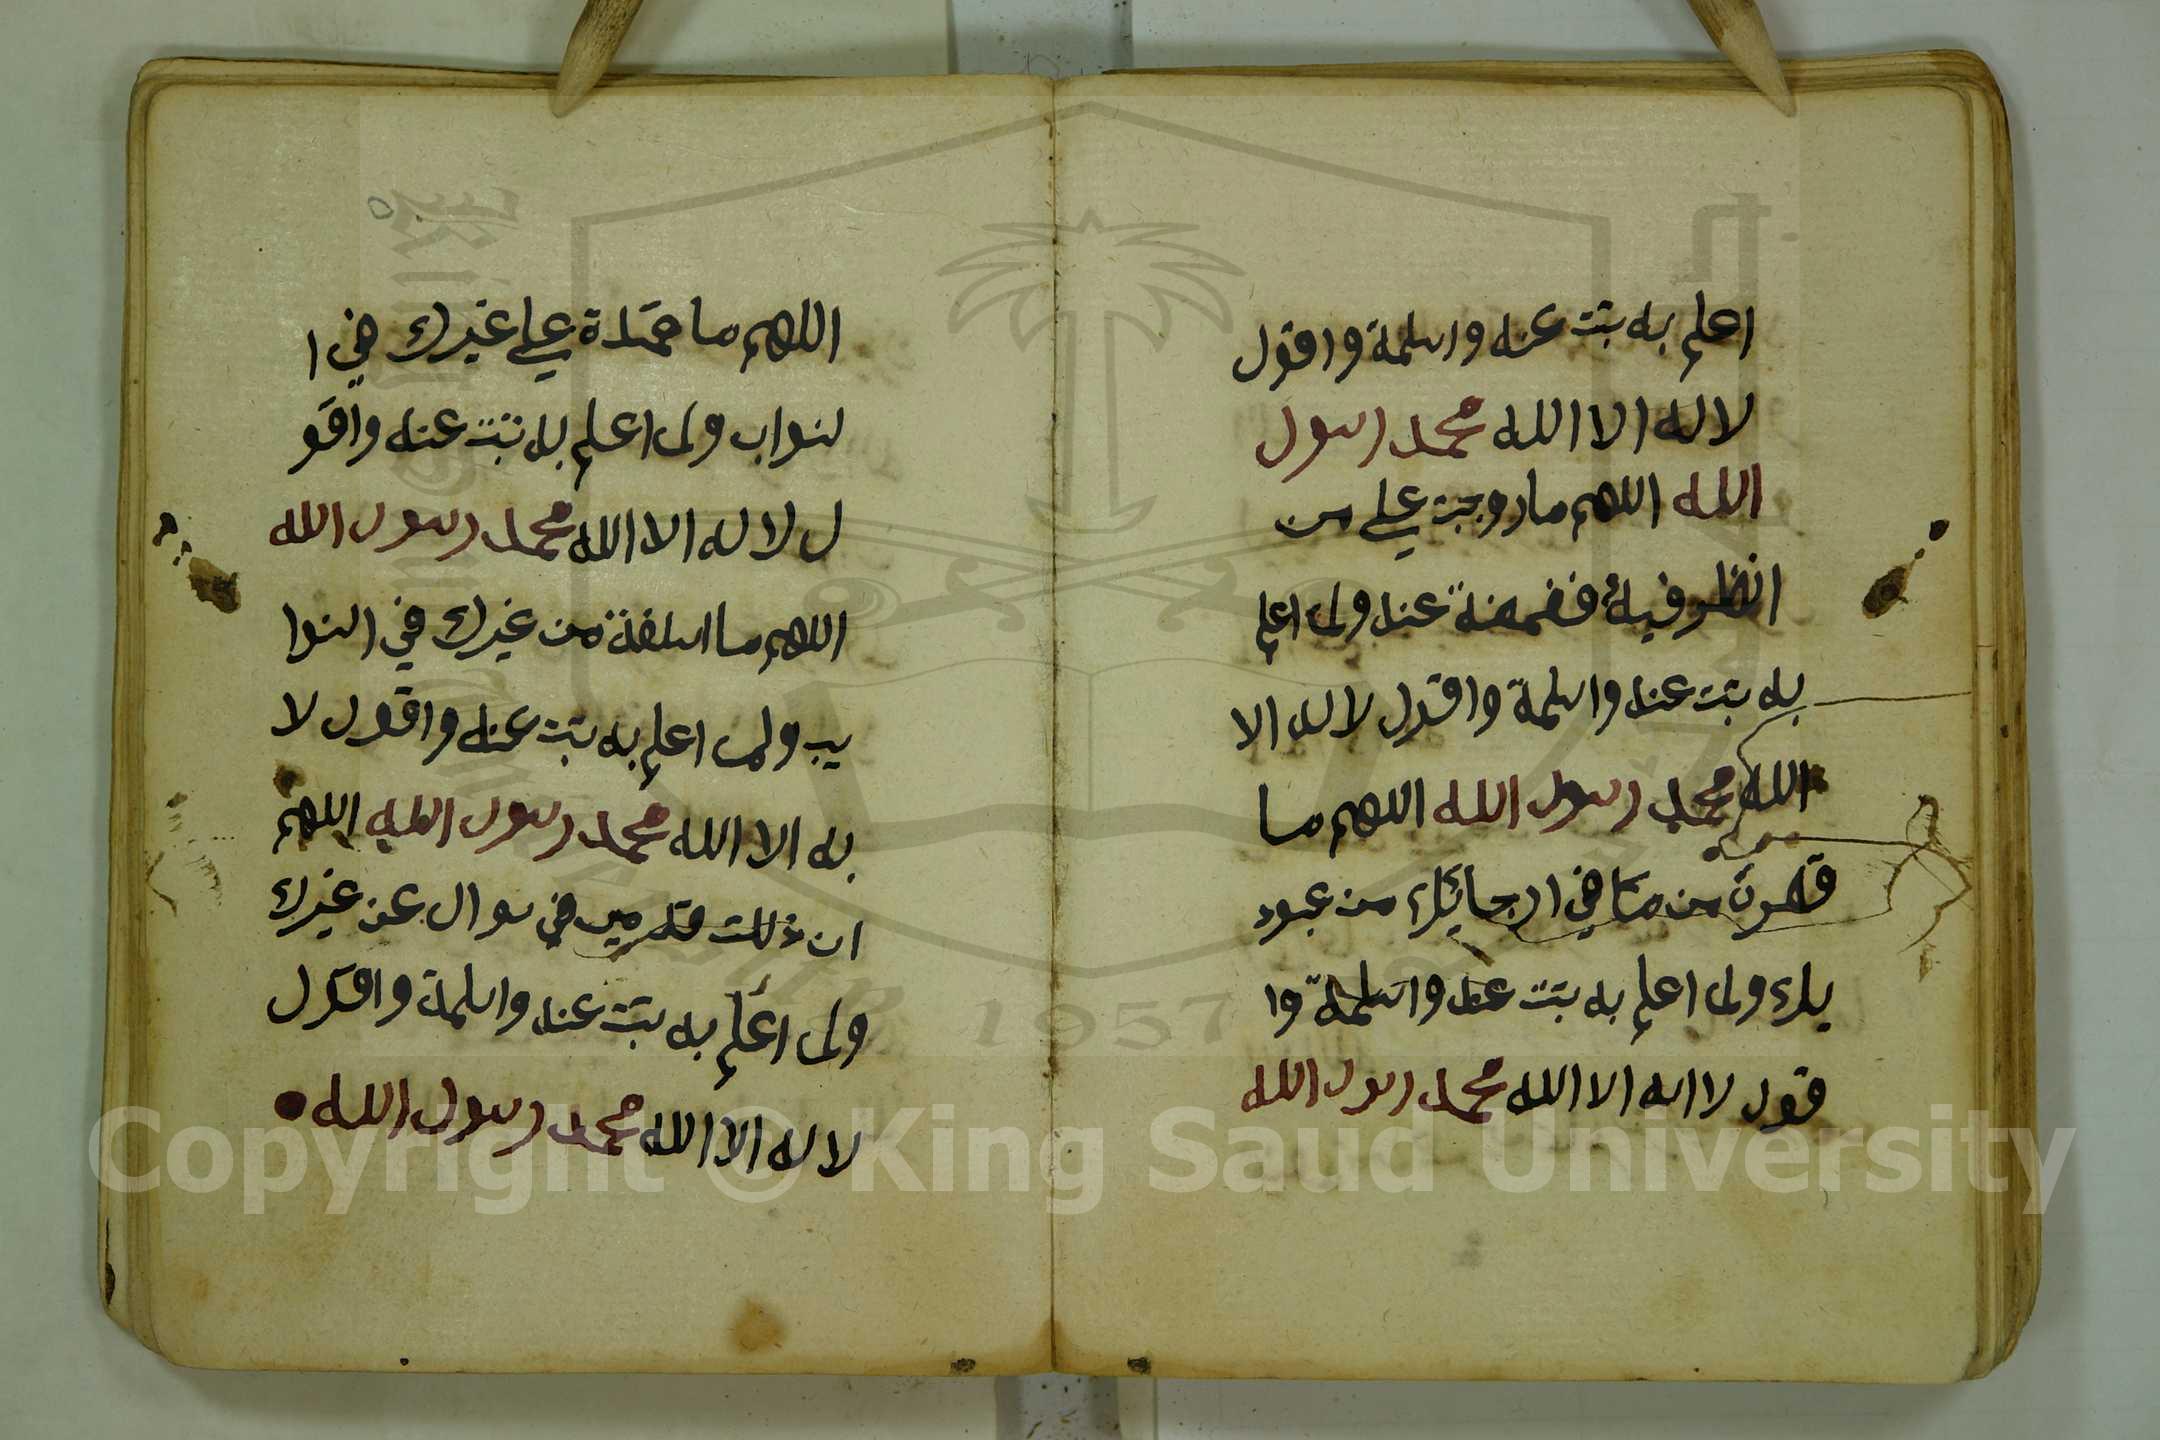 اعلم به تبت عنه واسلمة واقول
لا اله الا الله محمد رسول
الله اللهم ما روجبت علي من
انظر فيك فغمضة عنه ولم اعلم
به تبت عنه واسلمة واقول لا له الا
الله محمد رسول الله اللهم ما
قصرة من مما في ارجائك من عبود
يك ولم اعلم به تبت عنه واسلمة وا
قول لا اله الا الله محمد رسول الله
اللهم ما عمدة علي غيرك في ا
لنواب ولم اعلم به تبت عنه واقو
ل لا له الا الله محمد رسول الله
اللهم ما اسلفة من غيرك في النوا
يب ولم اعلم به تبت عنه واقول لا
به الا الله محمد رسول الله اللهم
ان ذللت في سوال عن غيرك
ولم اعلم به تبت عنه واسلمة واقول
لا له الا الله محمد رسول الله
1957
Copyright © King Saud University